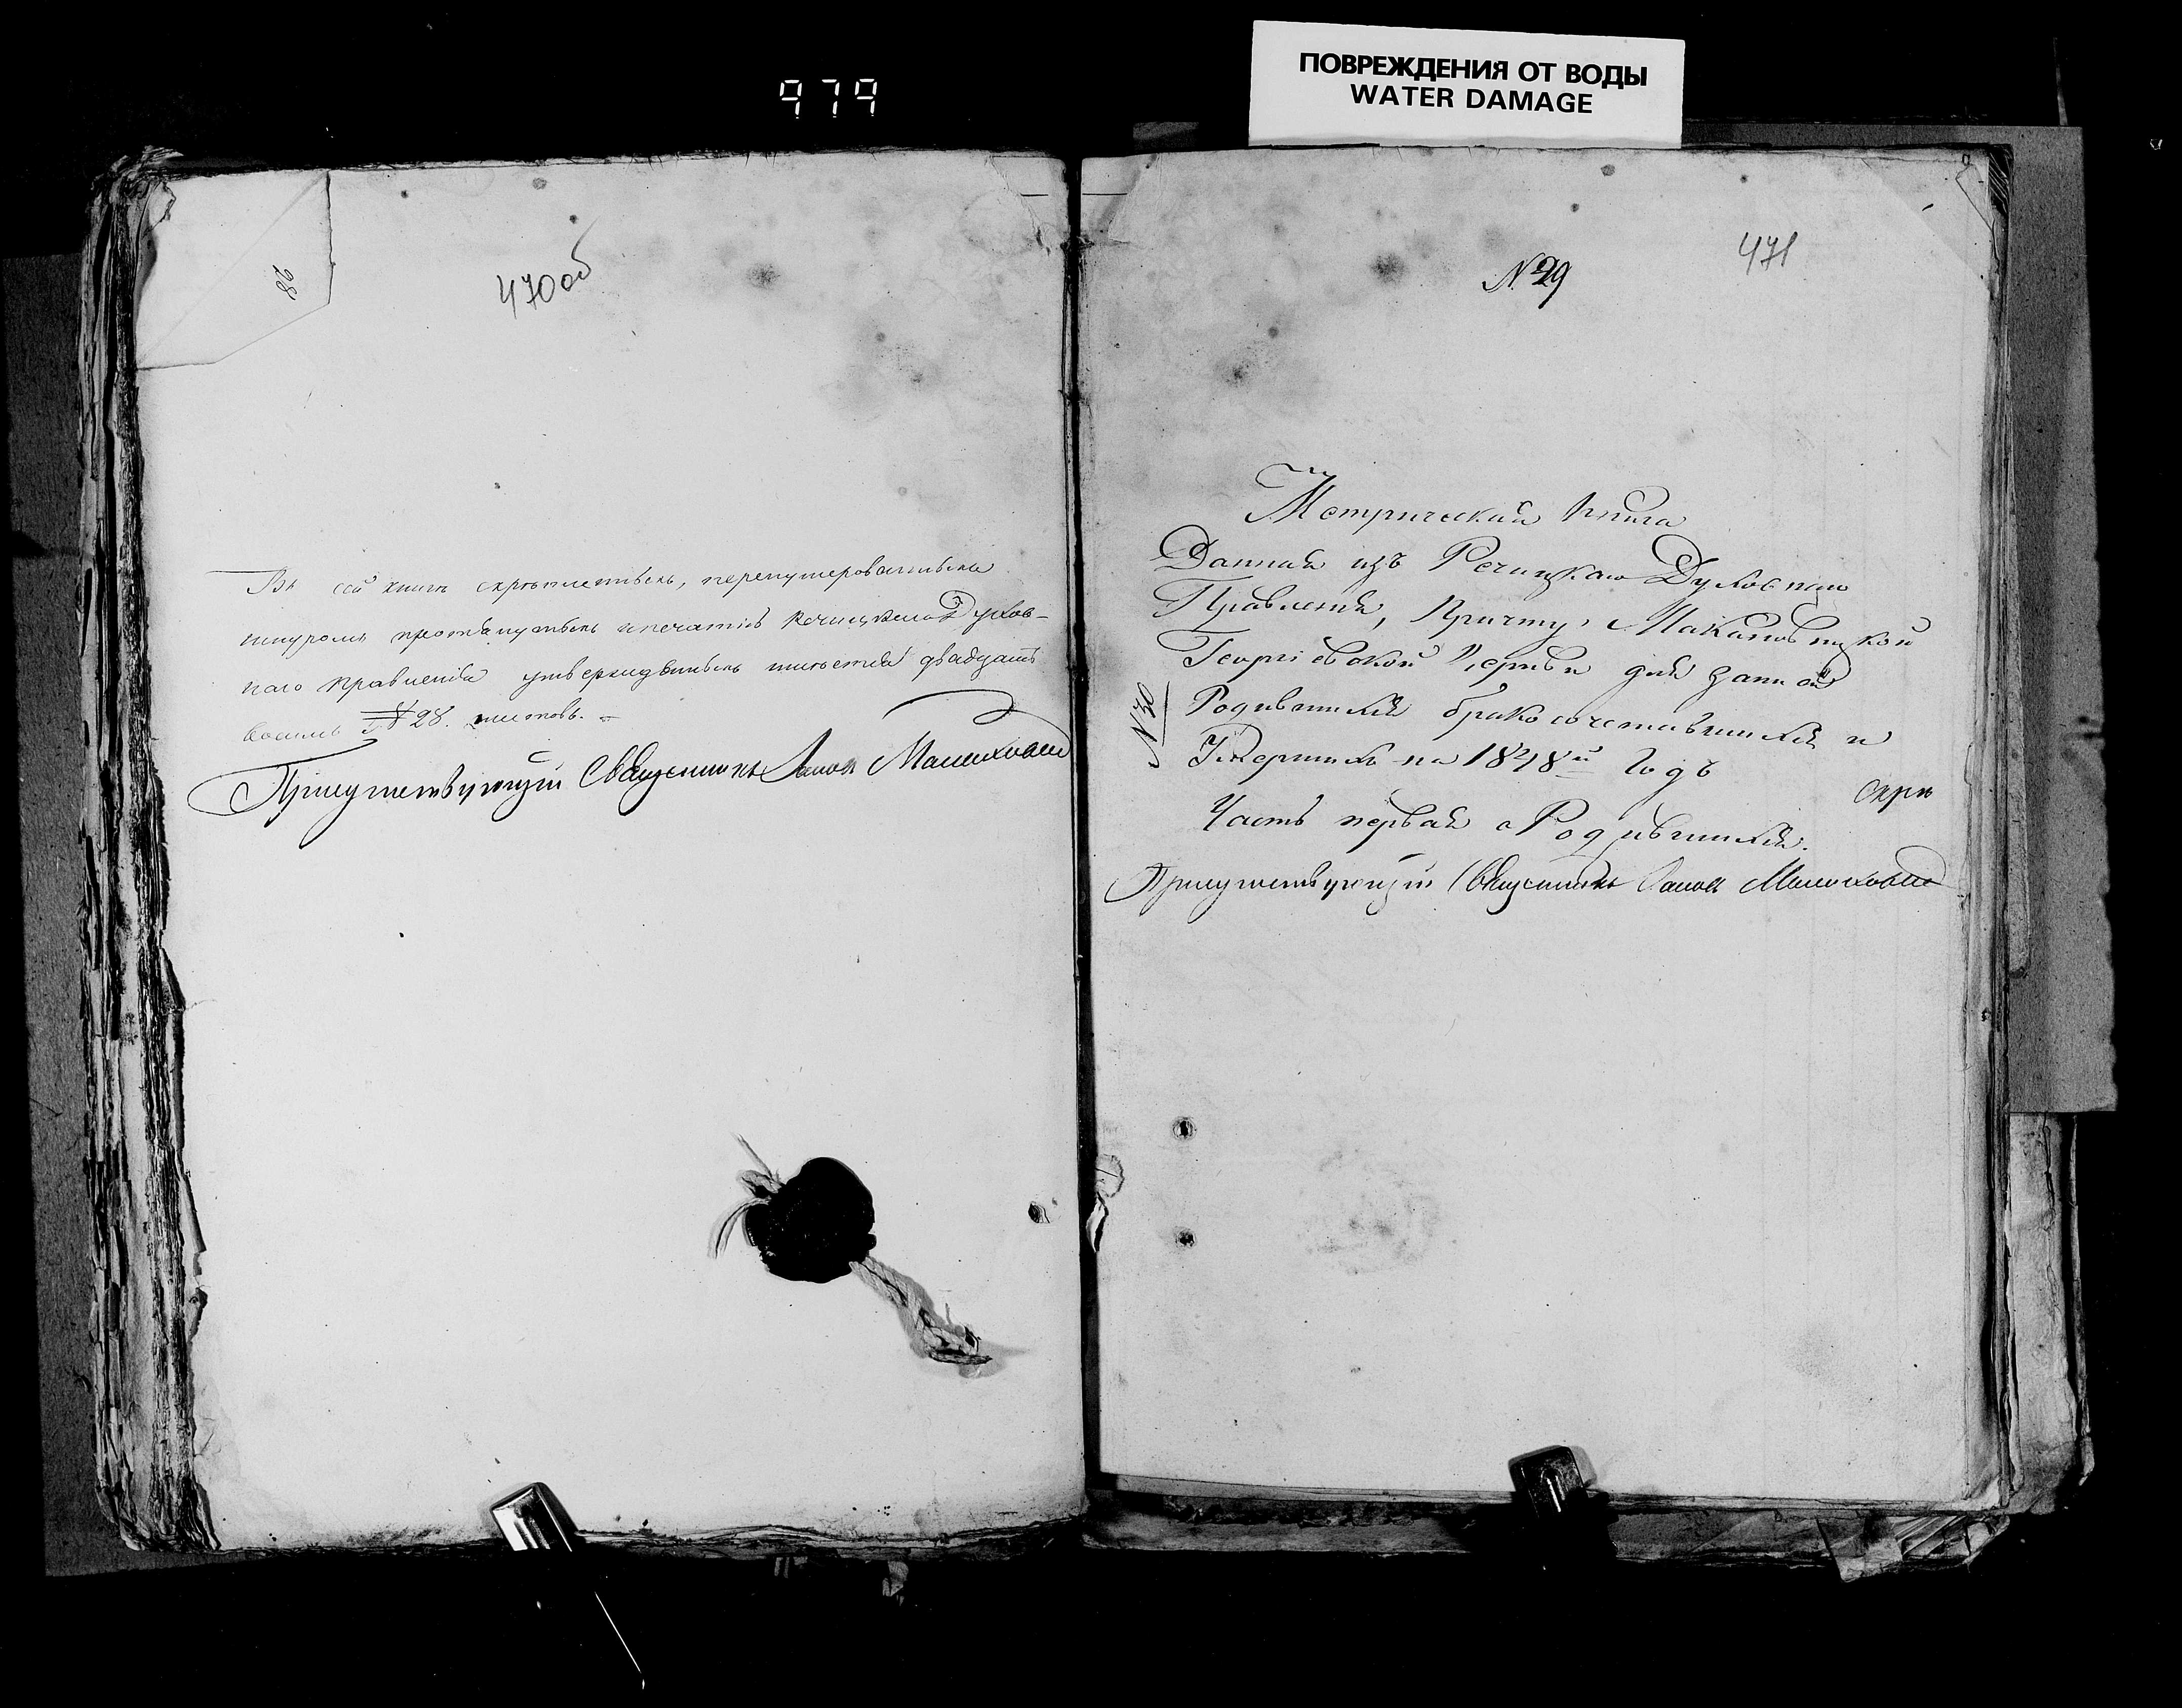 979
ПОВРЕЖДЕНИЯ ОТ ВОДЫ
WATER DAMAGE
28
470об
Въ сей книгѣ скрѣпленныхъ, перенумерованныхъ
шнуромъ протянутыхъ и печатью Речицкаго Духов-
наго Правленія утвержденныхъ листовъ двадцать
восемь № 28. листовъ.
Присутствующій Священникъ
№ 29
471
Метрическая Книга
Данная изъ Речицкаго Духовнаго
Правленія, Причту Макановицкой
Георгіевской Церкви для записи
Родившихся бракосочетавшихся и
Умершихъ на 1848й Годъ
№ 30
скрп
Часть первая о Родившихся.
Присутствующій Священникъ